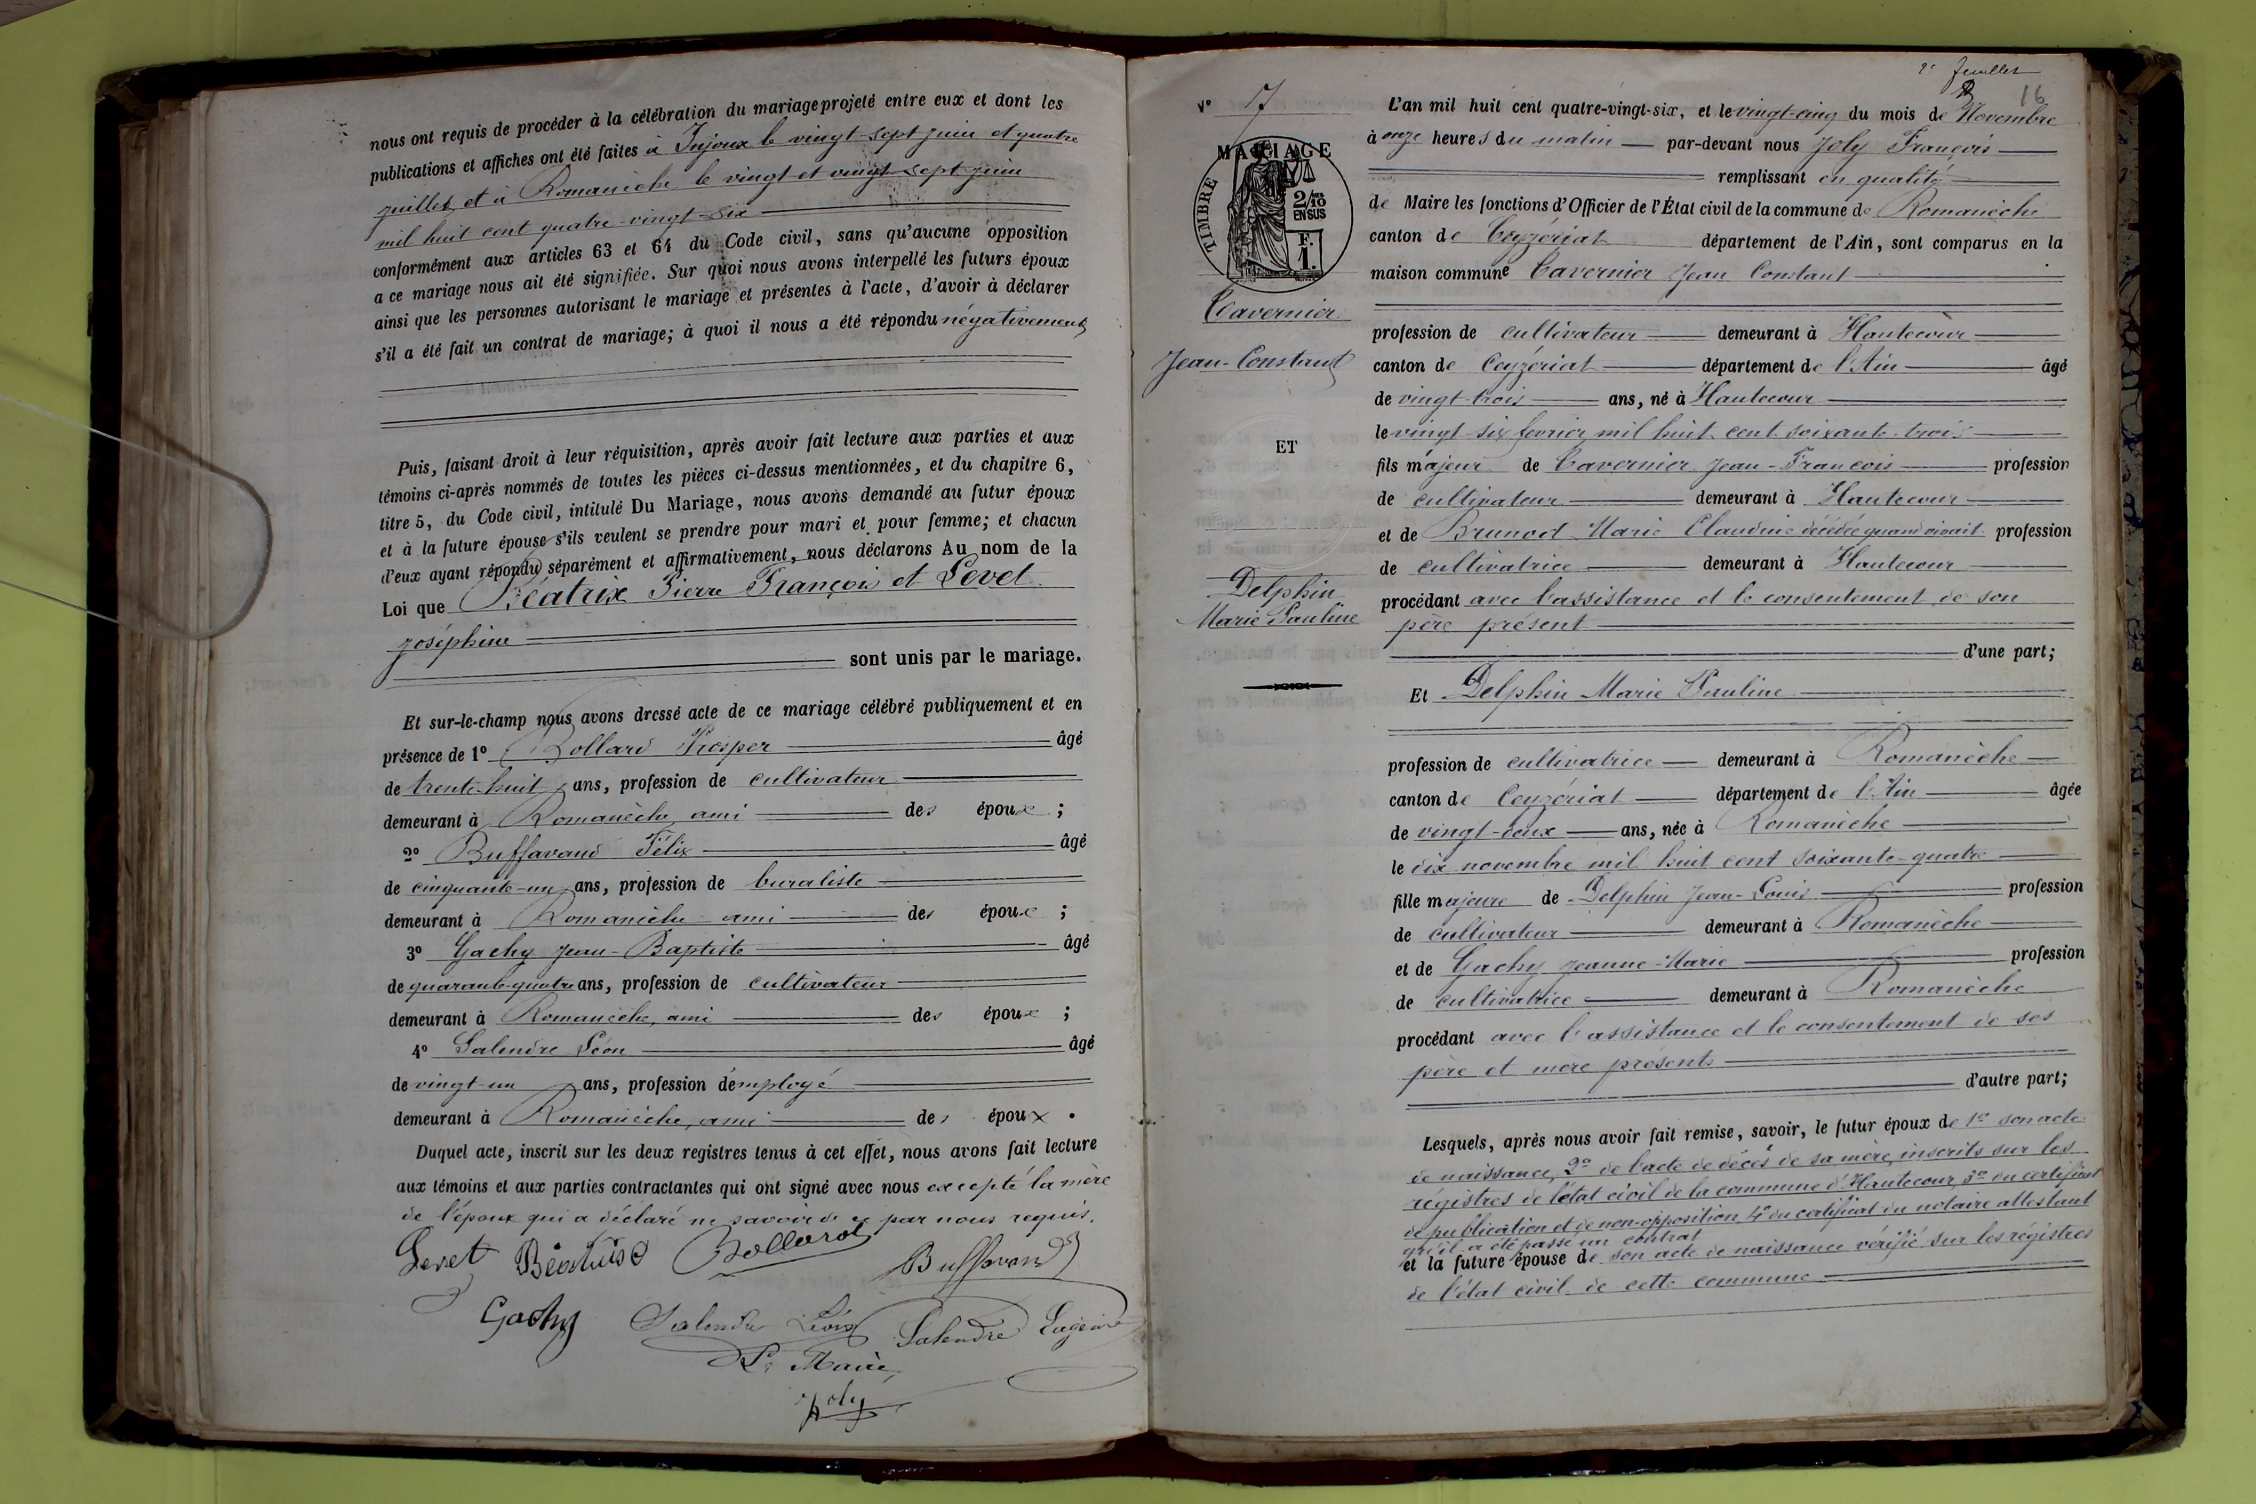 nous ont requis de procéder à la célébration du mariage projeté entre eux et dont les
publications et affiches ont été faites à Injoux le vingt-sept juin et quatre
juillet et à Romanèche le vingt et vingt-sept juin
mil huit cent quatre-vingt-six
conformément aux articles 63 et 64 du Code civil, sans qu'aucune opposition
a ce mariage nous ait été signifiée. Sur quoi nous avons interpellé les futurs époux
ainsi que les personnes autorisant le mariage et présentes à l'acte, d'avoir à déclarer
s'il a été fait un contrat de mariage; à quoi il nous a été répondu négativement
Puis, faisant droit à leur réquisition, après avoir fait lecture aux parties et aux
témoins ci-après nommés de toutes les pièces ci-dessus mentionnées, et du chapitre 6,
titre 5, du Code civil, intitulé Du Mariage, nous avons demandé au futur époux
et à la future épouse s'ils veulent se prendre pour mari et pour femme; et chacun
d'eux ayant répondu séparément et affirmativement, nous déclarons Au nom de la
Loi que Béatrix Pierre François et Levet
joséphine
sont unis par le mariage.
Et sur-le-champ nous avons dressé acte de ce mariage célébré publiquement et en
présence de 1º Bollard Prosper âgé
de trente-huit ans, profession de cultivateur
demeurant à Romanèche ami des époux ;
2º Buffavand Félix âgé
de cinquante-un ans, profession de buraliste
demeurant à Romanèche ami des époux ;
3º Gachy Jean-Baptiste âgé
de quarante-quatre ans, profession de cultivateur
demeurant à Romanèche, ami des époux ;
4º Salendre Léon âgé
de vingt-un ans, profession d'employé
demeurant à Romanèche, ami des époux .
Duquel acte, inscrit sur les deux registres tenus à cet effet, nous avons fait lecture
aux témoins et aux parties contractantes qui ont signé avec nous excepté la mère
de l'époux qui a déclaré ne savoir de ce par nous requis.
Levet Béatrix Bollard Buffavand
Gachy Salendre Léon Salendre Eugénie
Le Maire
Joly
2e feuillet
16
Nº 17
MARIAGE
TIMBRE
2/10 EN SUS
F. 1.
Tavernier
Jean-Constant
ET
Delphin
Marie Pauline
L'an mil huit cent quatre-vingt-six, et le vingt-cinq du mois de Novembre
à onze heures du matin par-devant nous Joly François
remplissant en qualité
de Maire les fonctions d'Officier de l'État civil de la commune de Romanèche
canton de Ceyzériat département de l'Ain, sont comparus en la
maison commune Tavernier Jean Constant
profession de cultivateur demeurant à Hautecour
canton de Ceyzériat département de l'Ain âgé
de vingt-trois ans, né à Hautecour
le vingt-six février mil huit cent soixante-trois
fils majeur de Tavernier Jean-François profession
de cultivateur demeurant à Hautecour
et de Brunod Marie Claudine décédée quand vivait profession
de cultivatrice demeurant à Hautecour
procédant avec l'assistance et le consentement de son
père présent
d'une part;
Et Delphin Marie Pauline
profession de cultivatrice demeurant à Romanèche
canton de Ceyzériat département de l'Ain âgée
de vingt-deux ans, née à Romanèche
le dix novembre mil huit cent soixante-quatre
fille majeure de Delphin Jean-Louis profession
de cultivateur demeurant à Romanèche
et de Gachy Jeanne-Marie profession
de cultivatrice demeurant à Romanèche
procédant avec l'assistance et le consentement de ses
père et mère présents
d'autre part;
Lesquels, après nous avoir fait remise, savoir, le futur époux de 1º son acte
de naissance, 2º de l'acte de décès de sa mère, inscrits sur les
régistres de l'état civil de la commune d'Hautecour, 3º du certificat
de publication et de non-opposition 4º du certificat du notaire attestant
qu'il a été passé un contrat
et la future épouse de son acte de naissance vérifié sur les régistres
de l'état civil de cette commune